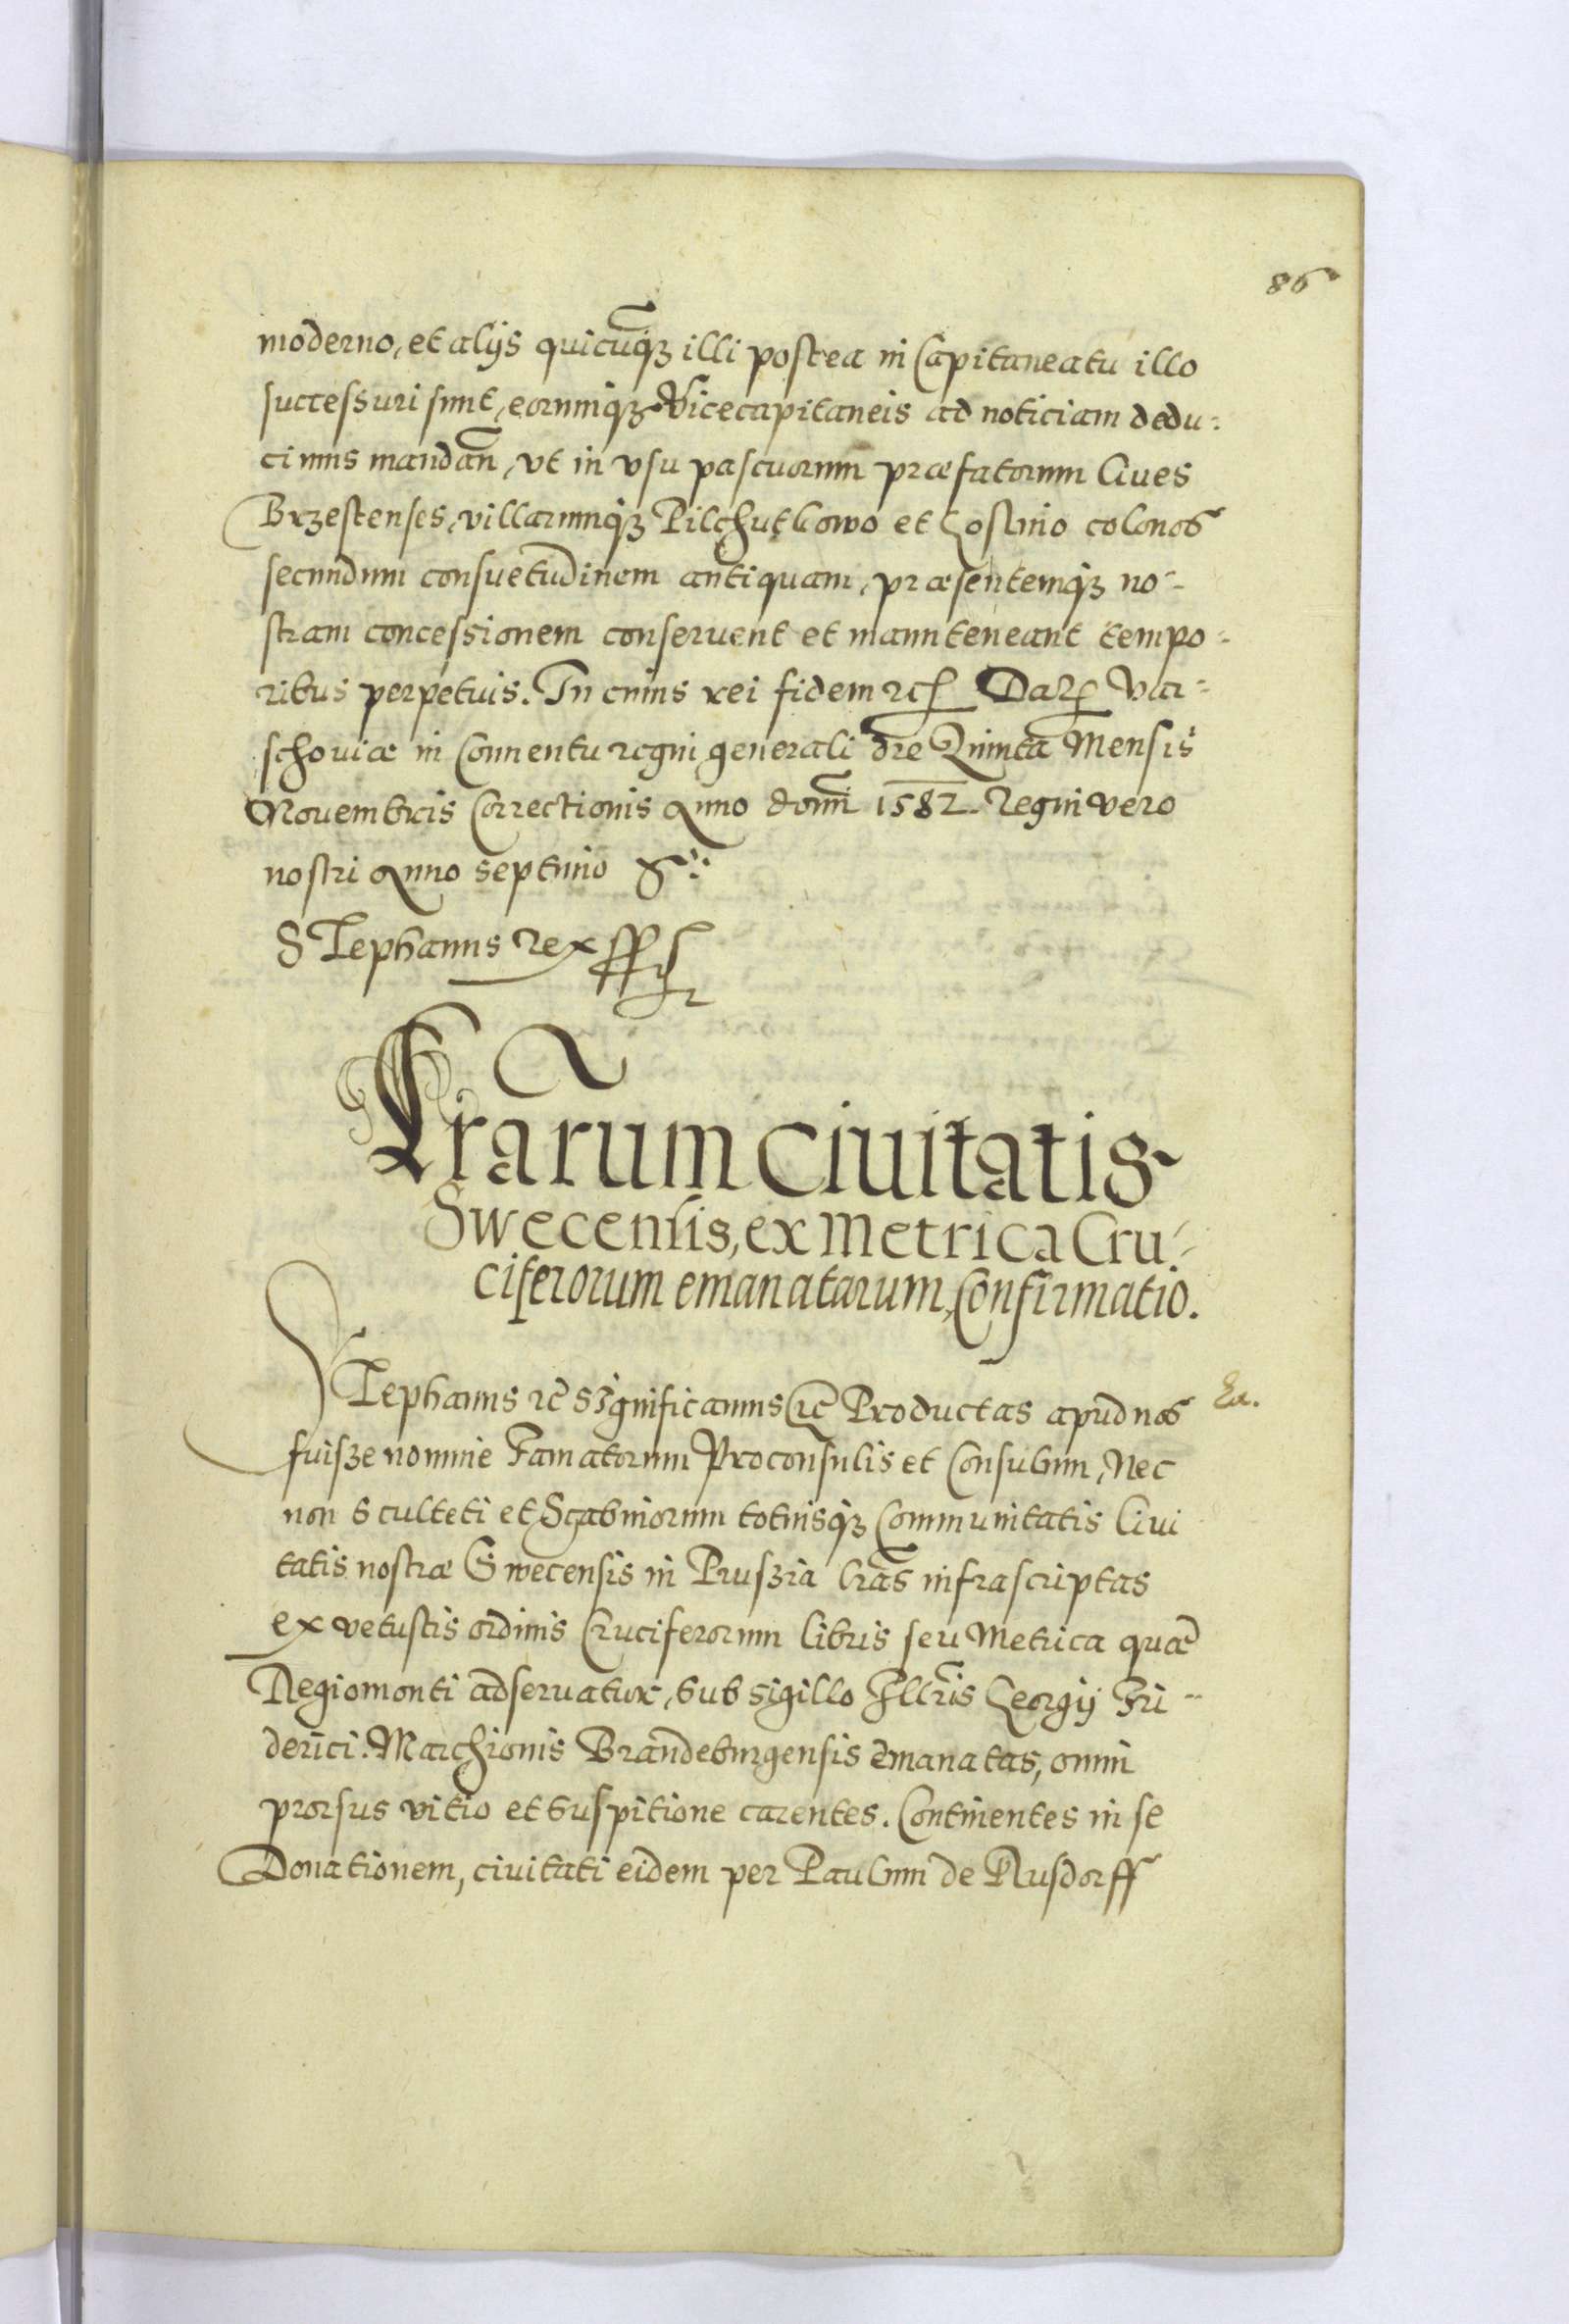 86
moderno, et alijs quicuq3 illi postea in Capitaneatu illo
successuri sunt, eorumq3 Vicecapitaneis ad noticiam dedu-
cimus mandan, vt in vsu pascuorum præfatorum Ciues
Brzestenses, villarumq3 Pilchutkowo et Gostino colonos
secundum consuetudinem antiquam, præsentemq3 no-
stram concessionem conseruent et mannteneant tempo-
ribus perpetuis. In cuius rei fidem etc Dat Var-
schouiæ in Conuentu regni generali die Quinta Mensis
Nouembris Correctionis Anno domi 1582. Regni vero
nostri Anno septimo
Stephanus Rex
Lrarum ciuitatis
Swecensis, ex Metrica Cru-
ciferorum emanatarum, Confirmatio.
Stephanus etc Significamus etc Productas apud nos
fuisze nomine Famatorum Proconsulis et Consulum, Nec
non Sculteti et Scabinorum totiusq3 Communitatis Ciui
tatis nostræ Swecensis in Pruszia lras infrascriptas
ex vetustis ordinis Cruciferorum libris seu Metrica quæ
Regiomonti adseruatur, sub sigillo Illris Georgij Fri-
derici Marchionis Brandeburgensis emanatas, omni
prorsus vitio et suspitione carentes. Continentes in se
Donationem, ciuitati eidem per Paulum de Rusdorff